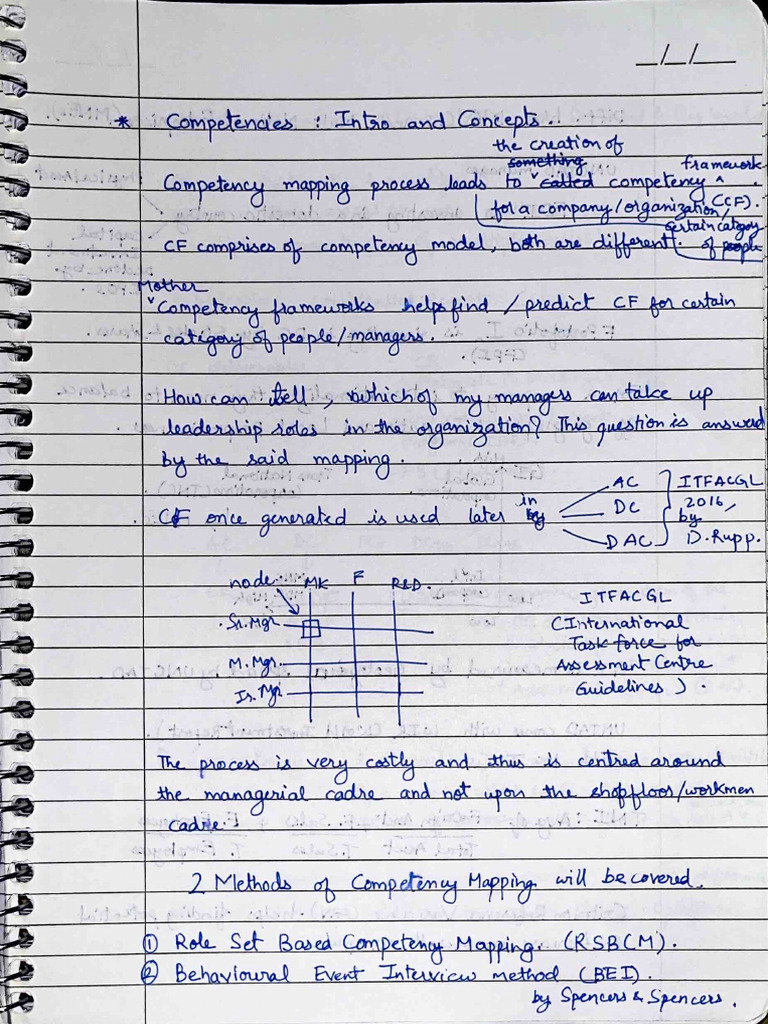 _/_/__
* Competencies : Intro and Concepts.
the creation of
something framework
Competency mapping process leads to called competency ^ .
for a company/organization/ (CF).
certain category
of people
CF comprises of competency model, both are different.
Mother
Competency frameworks helps find / predict CF for certain
category of people/managers.
How can tell, which of my managers can take up
leadership roles in the organization? This question is answered
by the said mapping.
CF once generated is used later in by
AC
DC
DAC
ITFACGL
2016,
by
D. Rupp.
node MK F R&D.
Sr. Mgr
M. Mgr.
Jr. Mgr
ITFACGL
(International
Task force for
Assessment Centre
Guidelines).
The process is very costly and thus is centred around
the managerial cadre and not upon the shopfloor/workmen
cadre.
2 Methods of Competency Mapping will be covered.
① Role Set Based Competency Mapping. (RSBCM).
② Behavioural Event Interview method (BEI).
by Spencers & Spencers.